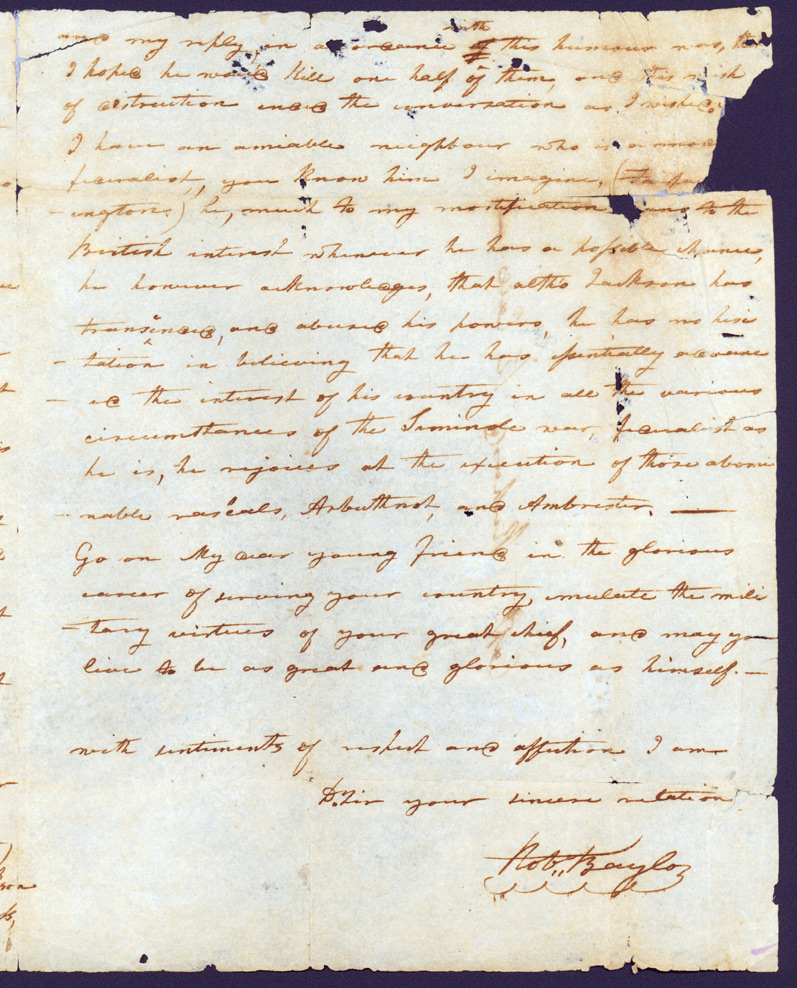 and my reply, in accordance with of this humour was, that
I hoped he would kill one half of them, and this wish
of destruction ended the conversation as I wished.
I have an amiable neighbour who is a
fœderalist, you know him I imagine,
-ington.) he, much to my mortification to the
British interest whenever he has a possible chance,
he however acknowledges, that altho Jackson has
transended, and abused his powers, he has no hesi
-tation in believing that he has essentially advanc
-ed the interest of his country in all the various
circumstances of the Siminole war, fœderalist as
he is, he rejoices at the execution of those abomi
-nable rascals, Arbuthnot, and Ambrester. —
Go on My dear young friend in the glorious
career of serving your country, emulate the mili
-tary virtues of your great chief, and may you
live to be as great and glorious as himself. —
with sentiments of respect and affection I am
Dr. Sir your sincere relation
Robt. Baylor